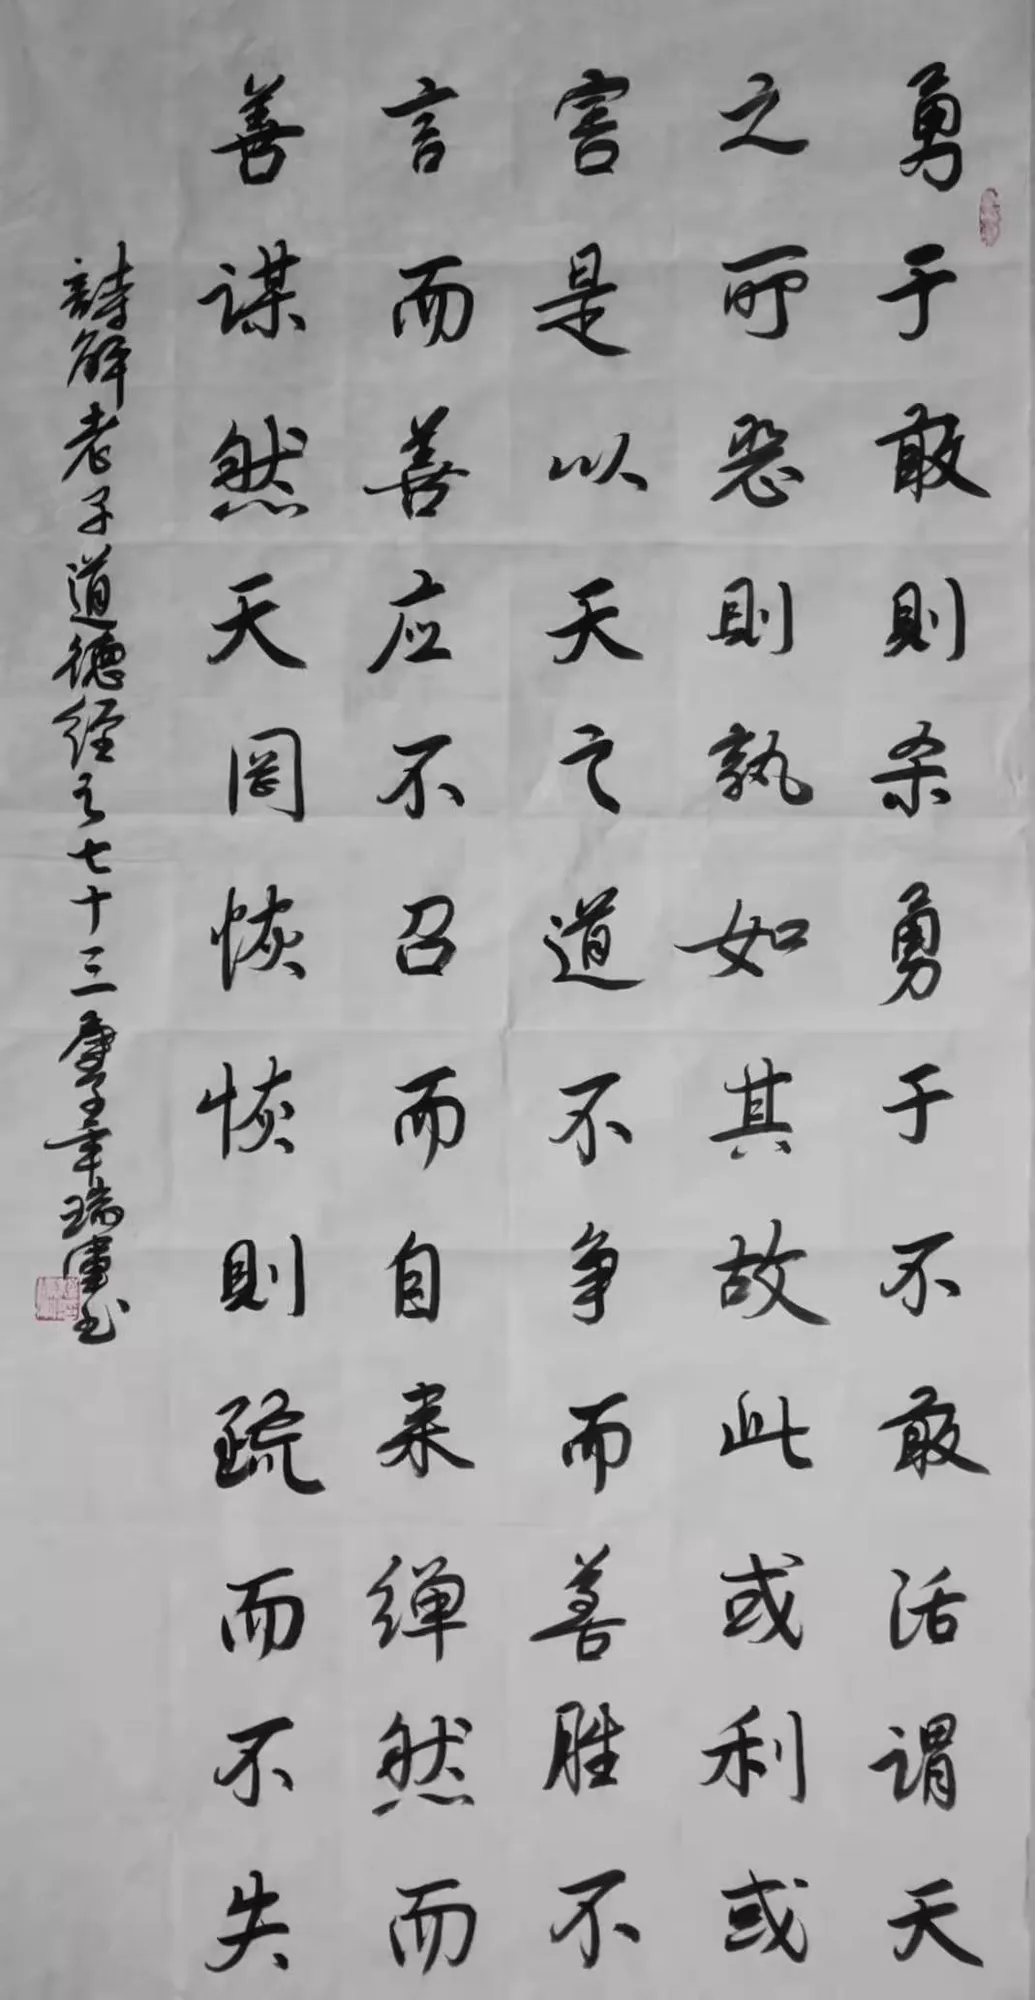 勇于敢则杀勇于不敢活谓天
之所恶则孰如其故此或利或
害是以天之道不争而善胜不
言而善应不召而自来繟然而
善谋然天罔恢恢则疏而不失
詩解老子道德经之七十三 年瑞 书